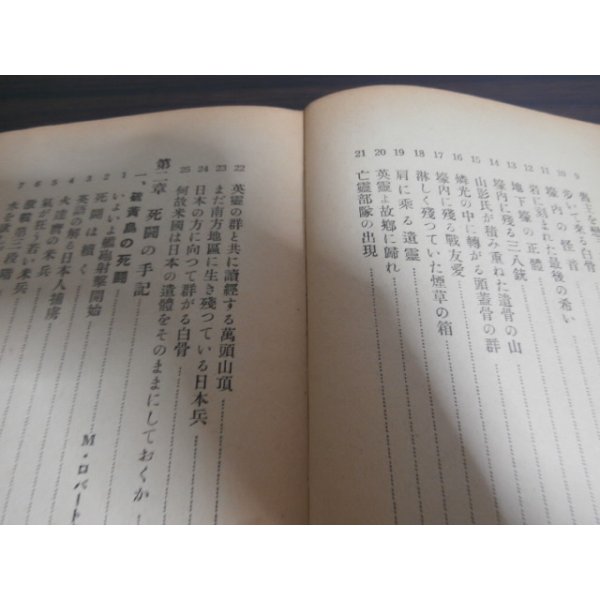 9
10 歩いて来る白骨
11 壕内の怪音
12 岩に刻まれた最後の希い
13 地下壕の正體
14 壕内に残る三八銃
15 山影氏が積み重ねた遺骨の山
16 燐光の中に轉がる頭蓋骨の群
17 壕内に残る戰友愛
18 淋しく残つていた煙草の箱
19 肩に乘る遺靈
20 英靈よ故鄕に歸れ
21 亡靈部隊の出現
22 英靈の群と共に讀經する萬頭山頂
23 まだ南方地區に生き残つている日本兵
24 日本の方に向つて群がる白骨
25 何故米國は日本の遺體をそのままにしておくか
第二章 死鬪の手記
一、硫黃島の死鬪 M・ロバート
1 いよいよ艦砲射擊開始
2 死鬪は續く
3 英語の解る日本人捕虜
4 火達磨の米兵
5 氣が狂う若い米兵
6 激戰第三段階
7 水を求